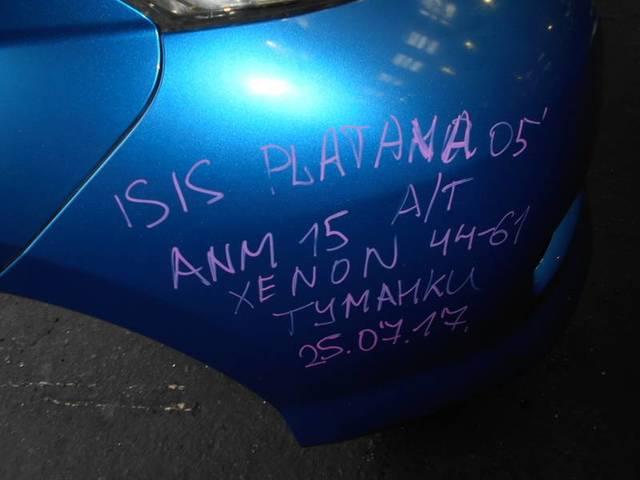 ISIS PLATANA 05'
ANM 15 A/T
XENON 44-61
ТУМАНКИ
25.07.17.